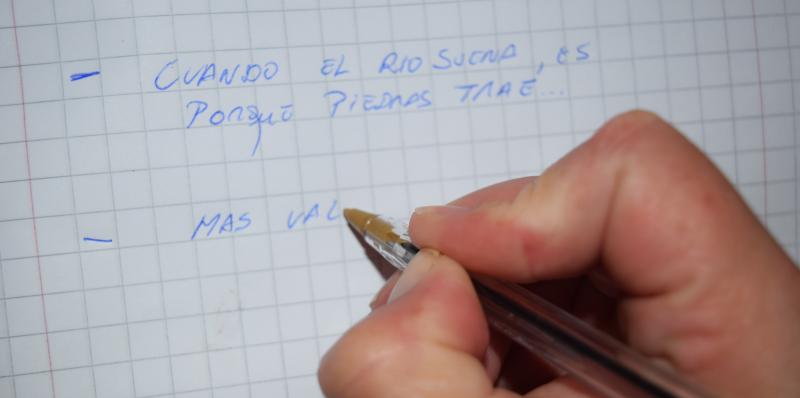 - CUANDO EL RIO SUENA, ES
PORQUE PIEDRAS TRAE...
- MAS VAL